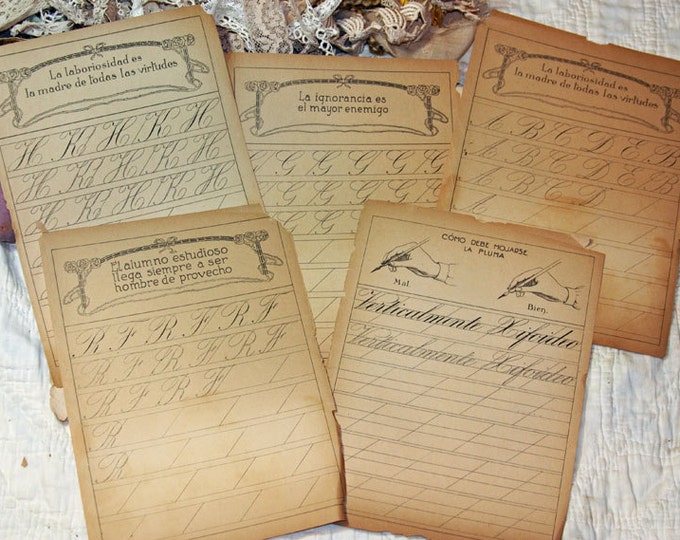 La laboriosidad es
la madre de todas las virtudes
H K H K H
H K H K H
H K H K H
La ignorancia es
el mayor enemigo
G G G G G
G G G G G
G
La laboriosidad es
la madre de todas las virtudes
A B C D E B
A B C D E B
A B C D
A
El alumno estudioso
llega siempre a ser
hombre de provecho
R F R F R F
R F R F R F
R F R F
R
R
CÓMO DEBE MOJARSE
LA PLUMA
Mal.
Bien.
Verticalmente Xifoideo
Verticalmente Xifoideo